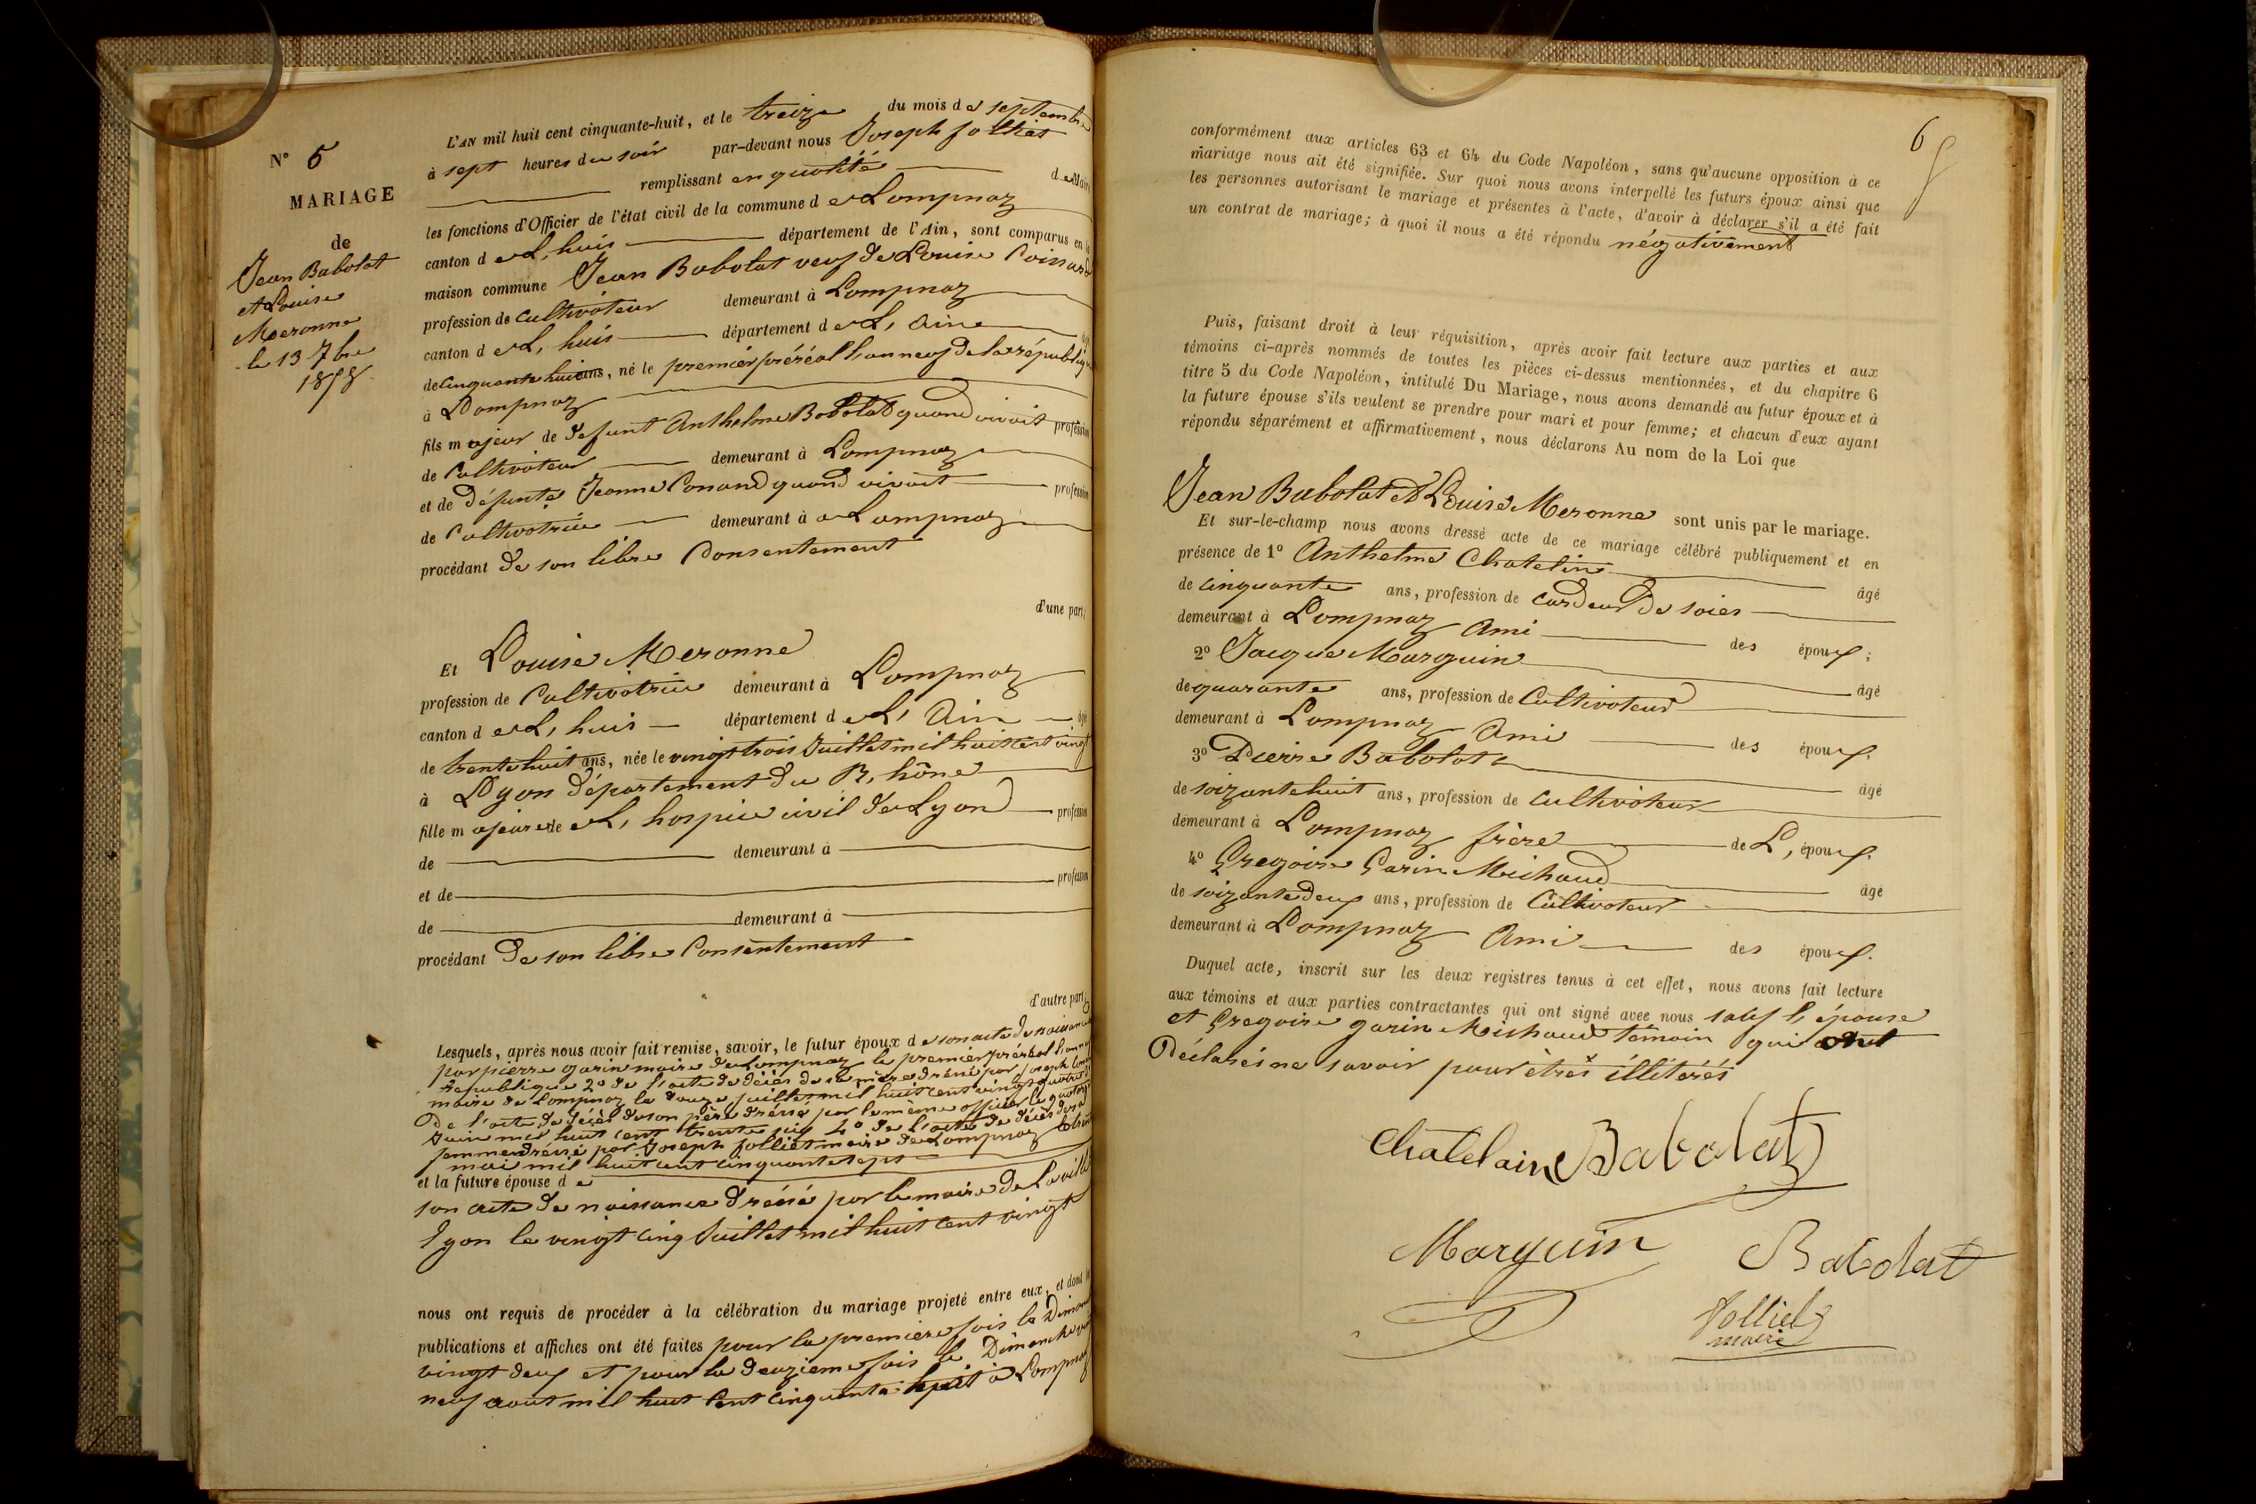 N° 5
MARIAGE
de
Jean Babolat
et Louise
Meronne
le 13 7bre
1858
L'AN mil huit cent cinquante-huit, et le treize du mois de septembre
à sept heures du soir par-devant nous Joseph Jolliet
remplissant en qualité de Maire
les fonctions d'Officier de l'état civil de la commune de Lompnaz
canton de L, huis département de l'Ain, sont comparus en la
maison commune Jean Babolat veuf de Louise Poissard
profession de Cultivateur demeurant à Lompnaz
canton de L, huis département de L, Ain âgé
de cinquante huit ans, né le premier préréal l'an neuf de la républiq
à Lompnaz
fils majeur de defunt Anthelme Babolat quand vivait profession
de Cultivateur demeurant à Lompnaz
et de défunte Jeanne Conand quand vivait profession
de Cultivatrice demeurant à Lompnaz
procédant de son libre Consentement
d'une part;
Et Louise Meronne
profession de Cultivatrice demeurant à Lompnaz
canton de L, huis département de L, Ain âgé
de trente huit ans, née le vingt trois Juillet mil huit cent vingt
à Lyon département du R, hône
fille majeure de L, hospice civil de Lyon profession
de demeurant à
et de profession
de demeurant à
procédant de son libre Consentement
d'autre part;
Lesquels, après nous avoir fait remise, savoir, le futur époux de son acte de naissance
par pierre garin maire de Lompnaz le premier préréal l'an neuf
republique 2° de l'acte de décès de sa mère dréssé par joseph
maire de Lompnaz le douze juillet mil huit cent vingt quatre
De l'acte de décès de son père dréssé par le même officier le quatorze
Juin mil huit cent trente six 4° de l'acte de décès de sa
femme dressé par Joseph Jolliet maire de Lompnaz
mai mil huit cent cinquante sept
et la future épouse de
son acte de naissance dréssé par le maire de La ville
Lyon le vingt cinq Juillet mil huit cent vingt
nous ont requis de procéder à la célébration du mariage projeté entre eux, et dont les
publications et affiches ont été faites pour la premiere fois le Diman
vingt deux et pour la deuxieme fois le Dimanche vingt
neuf aout mil huit Cent cinquante huit à Lompnaz
6
conformément aux articles 63 et 64 du Code Napoléon, sans qu'aucune opposition à ce
mariage nous ait été signifiée. Sur quoi nous avons interpellé les futurs époux ainsi que
les personnes autorisant le mariage et présentes à l'acte, d'avoir à déclarer s'il a été fait
un contrat de mariage; à quoi il nous a été répondu négativement
Puis, faisant droit à leur réquisition, après avoir fait lecture aux parties et aux
témoins ci-après nommés de toutes les pièces ci-dessus mentionnées, et du chapitre 6
titre 5 du Code Napoléon, intitulé Du Mariage, nous avons demandé au futur époux et à
la future épouse s'ils veulent se prendre pour mari et pour femme; et chacun d'eux ayant
répondu séparément et affirmativement, nous déclarons Au nom de la Loi que
Jean Babolat et Louise Meronne sont unis par le mariage.
Et sur-le-champ nous avons dressé acte de ce mariage célébré publiquement et en
présence de 1° Anthelme Chatelin âgé
de cinquante ans, profession de cardeur de soies
demeurant à Lompnaz Ami des époux;
2° Jacque Marguin âgé
de quarante ans, profession de Cultivateur
demeurant à Lompnaz Ami des époux.
3° Pierre Babolat âgé
de soizante huit ans, profession de cultivateur
demeurant à Lompnaz frère de L, époux.
4° Gregoire Garin Michaud âgé
de soizante deux ans, profession de Cultivateur
demeurant à Lompnaz Ami des époux.
Duquel acte, inscrit sur les deux registres tenus à cet effet, nous avons fait lecture
aux témoins et aux parties contractantes qui ont signé avec nous sauf l, épouse
et Gregoire garin Michaud témoin qui ont
Déclarés ne savoir pour êtres illitérés
Chatelain Babolat
Marguin Babolat
Jolliet
maire